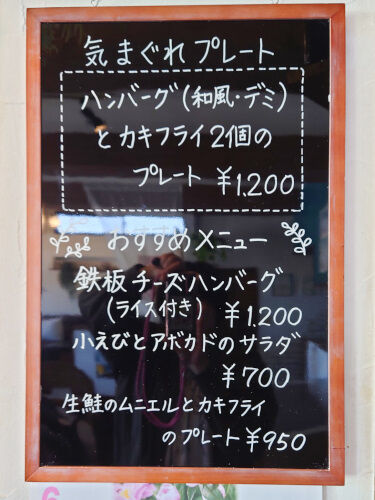 気まぐれプレート
ハンバーグ(和風・デミ)
とカキフライ2個の
プレート ¥1,200
おすすめメニュー
鉄板チーズハンバーグ
(ライス付き) ¥1.200
小えびとアボカドのサラダ
¥700
生鮭のムニエルとカキフライ
のプレート¥950